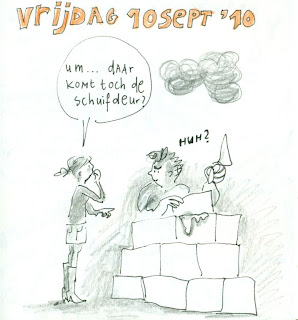 vrijDAG 10 SEPT '10
um... daar
komt toch de
schuifdeur?
HUH?